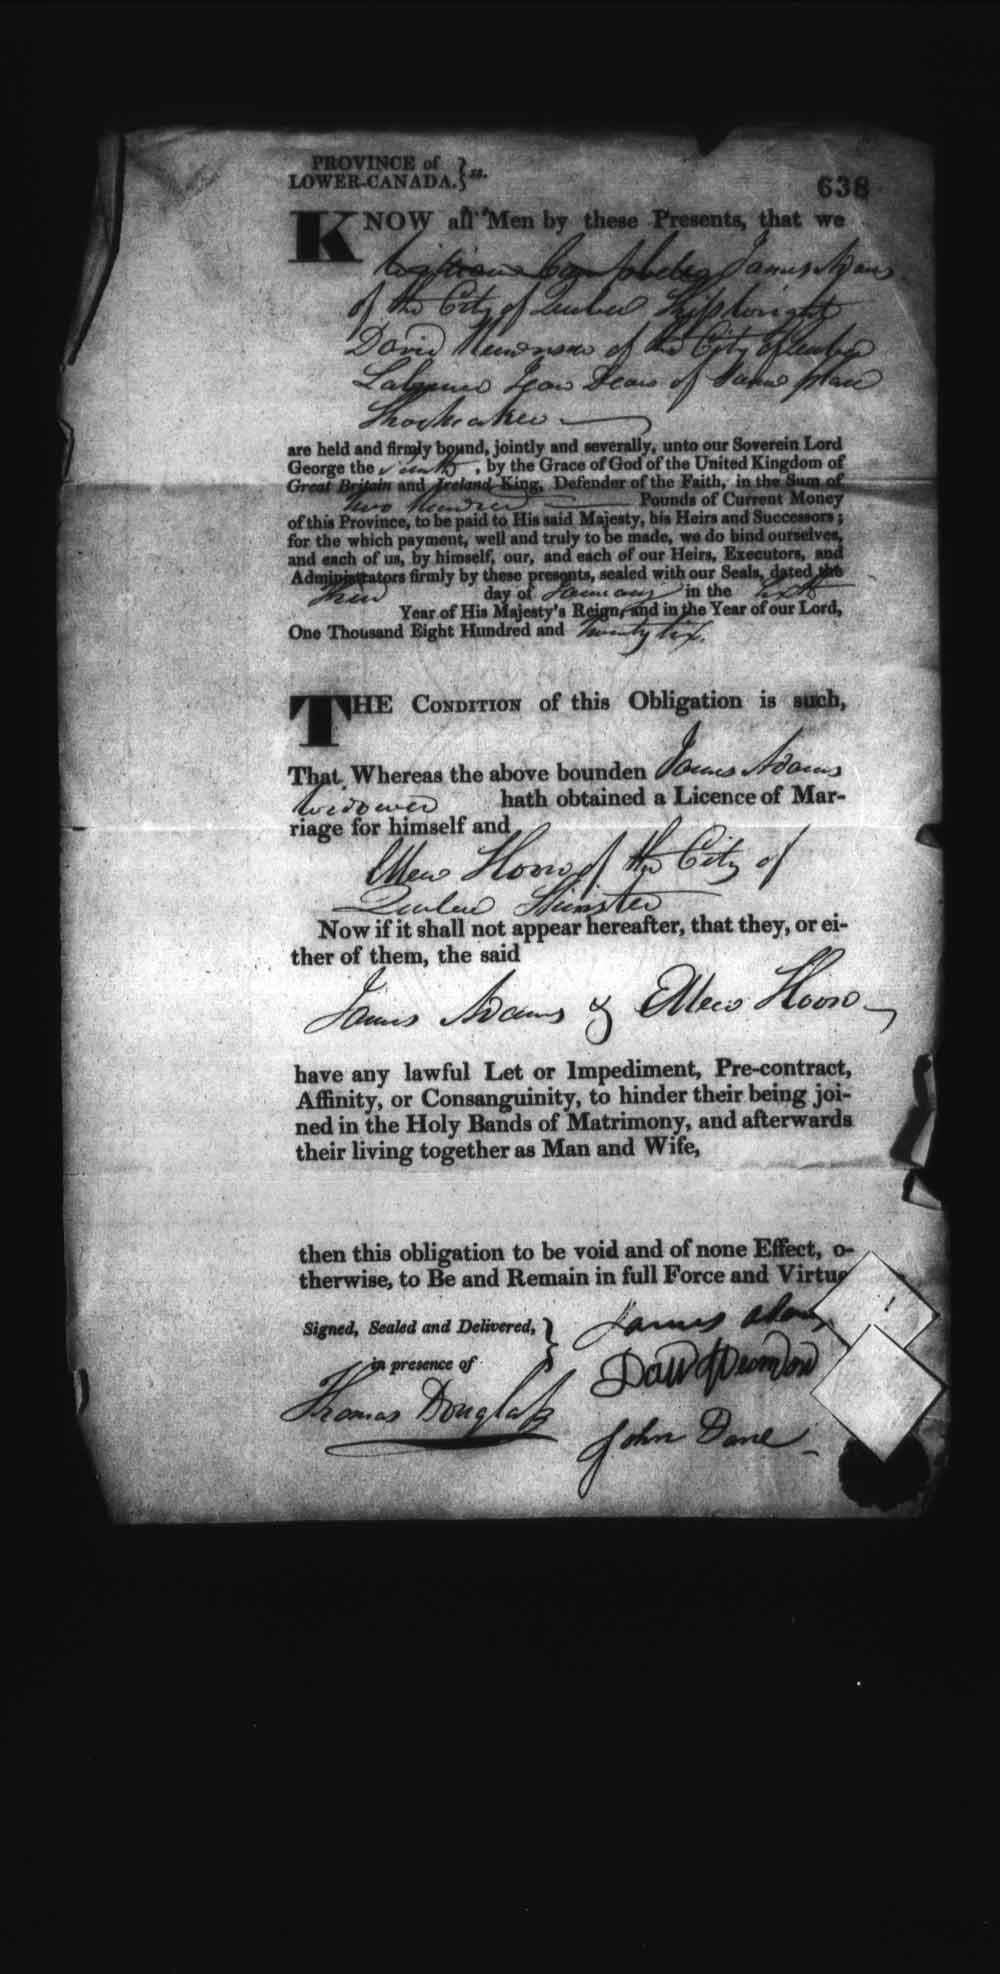 PROVINCE of
LOWER-CANADA. } ss.
638
KNOW all Men by these Presents, that we
James Adams
of the City of Quebec Shipwright
David of the City of Quebec
of same place
Shoemaker
are held and firmly bound, jointly and severally, unto our Soverein Lord
George the , by the Grace of God of the United Kingdom of
Great Britain and Ireland King, Defender of the Faith, in the Sum of
Two Hundred Pounds of Current Money
of this Province, to be paid to His said Majesty, his Heirs and Successors;
for the which payment, well and truly to be made, we do bind ourselves,
and each of us, by himself, our, and each of our Heirs, Executors, and
Administrators firmly by these presents, sealed with our Seals, dated the
day of January in the sixth
Year of His Majesty's Reign, and in the Year of our Lord,
One Thousand Eight Hundred and Twenty six.
THE CONDITION of this Obligation is such,
That Whereas the above bounden James Adams
Widower hath obtained a Licence of Mar-
riage for himself and
Ellen of the City of
Quebec Spinster
Now if it shall not appear hereafter, that they, or ei-
ther of them, the said
James Adams & Ellen
have any lawful Let or Impediment, Pre-contract,
Affinity, or Consanguinity, to hinder their being joi-
ned in the Holy Bands of Matrimony, and afterwards
their living together as Man and Wife,
then this obligation to be void and of none Effect, o-
therwise, to Be and Remain in full Force and Virtue
Signed, Sealed and Delivered, }
in presence of
James Adams
Thomas Douglass
John Dane